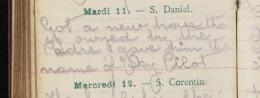 Mardi 11. — S. Daniel.
Got a new horse to
owned by the
Padre I gave him the
name of Sky Pilot
Mercredi 12. — S. Corentin.